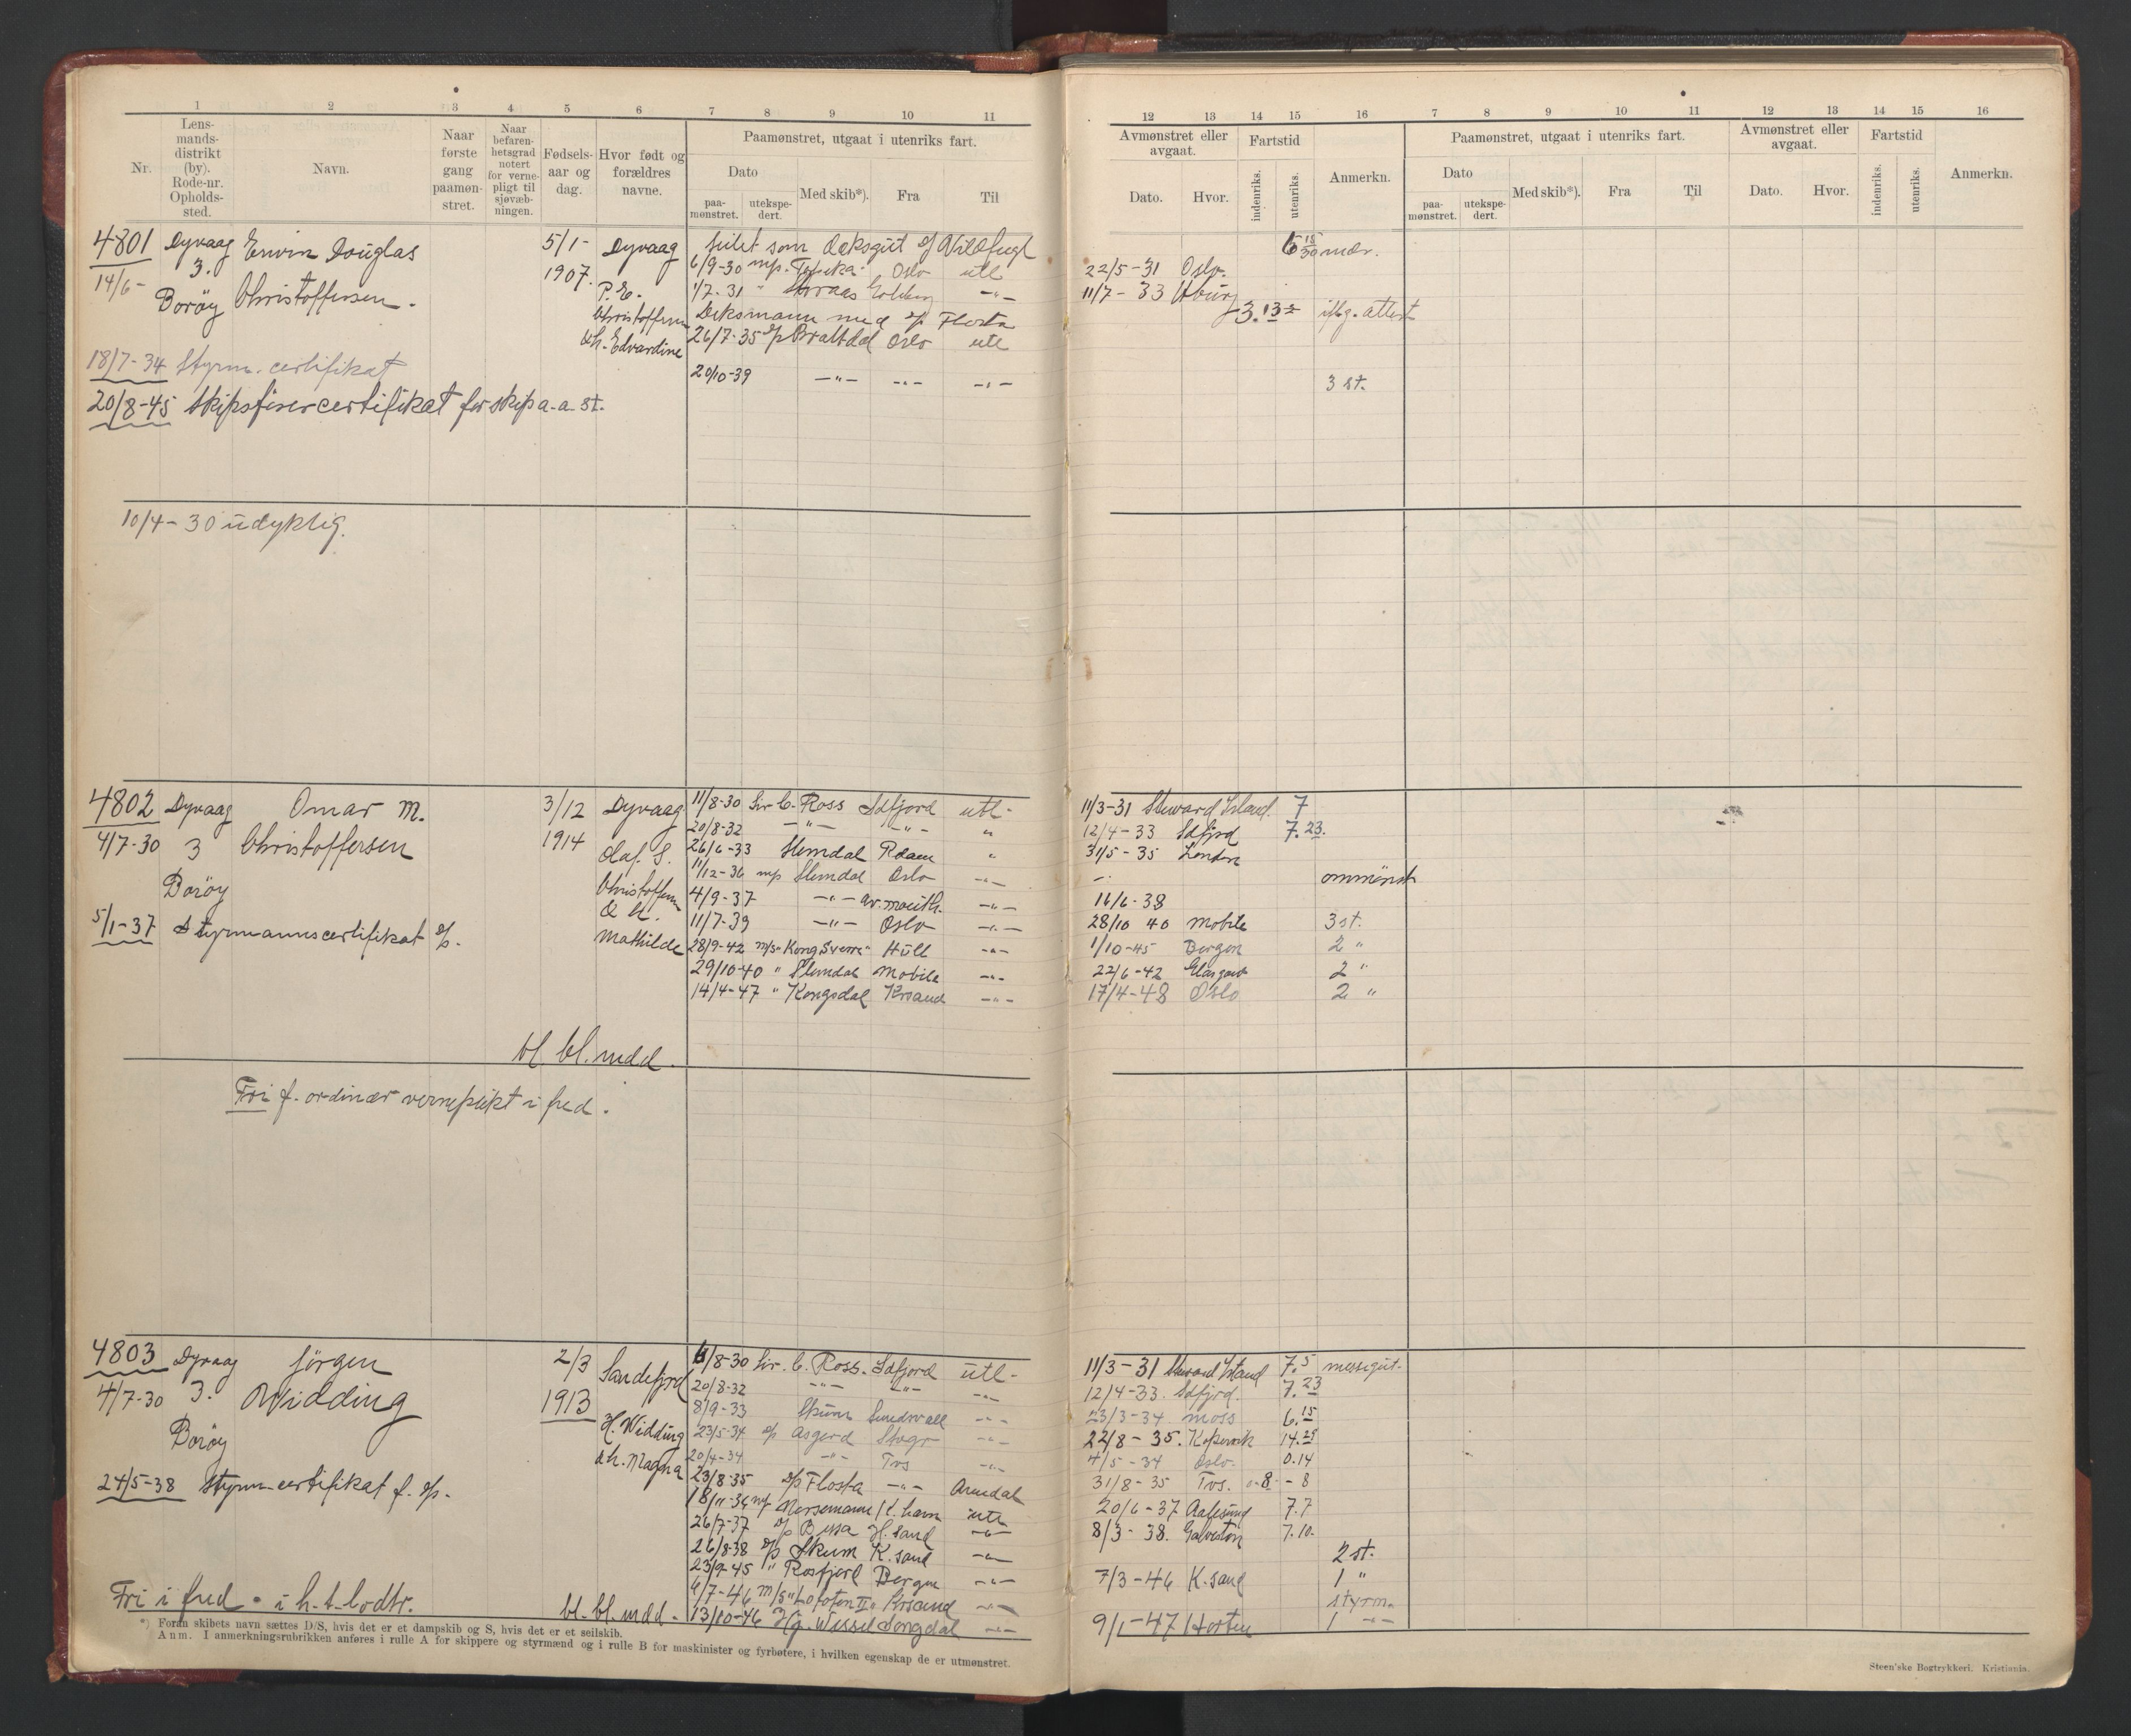 1 2 3 4 5 6 7 8 9 10 11
Nr. Lensmandsdistrikt (by). Rode-nr. Opholdssted. Navn. Naar første gang paamønstret. Naar befarenhetsgrad notert for vernepligt til sjøvæbningen. Fødselsaar og dag. Hvor født og forældres navne. Paamønstret, utgaat i utenriks fart.
Dato Med skib*). Fra Til
paamønstret. utekspedert.
12 13 14 15 16 7 8 9 10 11 12 13 14 15 16
Avmønstret eller avgaat. Fartstid Anmerkn. Paamønstret, utgaat i utenriks fart. Avmønstret eller avgaat. Fartstid Anmerkn.
Dato. Hvor. indenriks. utenriks. Dato Med skib*). Fra Til Dato. Hvor. indenriks. utenriks.
paamønstret. utekspedert.
4801 Dyvaag Erwin Douglas 5/1- Dyvaag seilet som deksgut 6 15/30 mdr.
14/6- 3. 1907. P.E. 6/9-30 m/p Oslo utl 22/5-31 Oslo.
Borøy Christoffersen. 1/7-31 -"- 11/7-33
Christoffersen Deksmann med Flosta 3. 13 attest
& h. Edvardine 26/7-35 Brattdal Oslo utl
18/7-34 Styrm. certifikat
20/10-39 -"- -"- -"- 3 st.
20/8-45 Skipsførercertifikat for skip a-a st.
10/4-30 udyktig.
4802 Dyvaag Omar M. 3/12 Dyvaag 11/8-30 Sir C. Ross Sdfjord utl- 11/3-31 Steward Island. 7
4/7-30 3 Christoffersen 1914 Olaf S. 20/8-32 -"- -"- " 12/4-33 Sdfjrd 7.23.
26/6-33 Slemdal Rdam " 31/5-35 London
Borøy Christoffersen 11/12-36 m/p Slemdal Oslo -"- -"- ommønst
& h. 4/9-37 -"- -"- 16/6-38
5/1-37 Styrmannscertifikat 11/7-39 -"- Oslo -"- 28/10 40 Mobile 3 st.
Mathilde 28/9-42 m/s "Kong Sverre" Hull -"- 1/10-45 Bergen 2 "
29/10-40 " Slemdal Mobile -"- 22/6-42 Glasgow 2 "
14/4-47 " Kongsdal Krsand -"- 17/4-48 Oslo 2 "
bl. bl. mdd.
Fri f. ordinær verneplikt i fred.
4803 Dyvaag Jörgen 2/3 Sandefjord 11/8-30 Sir. C. Ross. Sdfjord utl- 11/3-31 Steward Island 7.5 messegut.
4/7-30 3. Widding 1913 20/8-32 -"- -"- -"- 12/4-33. Sdfjrd. 7.23
8/9-33 Skum Sundsvall -"- 23/3-34 Moss 6.15
Borøy H. Widding 23/5-34 Asgerd Stvgr -"- 22/8-35. Kopervik 14.29
& h. Magna 20/4-34 -"- Tvs -"- 4/5-34 Oslo. 0.14
24/5-38 Styrm-certifikat f. 23/8-35 Flosta -"- Arendal 31/8-35 Tvs. 0-8 - 8
18/11-36 Norsemann K. havn utl 20/6-37 Aalesund 7.7
26/7-37 Bessa H. sand -"- 8/3-38. Galveston 7.10.
26/8-38 Skum K. sand -"- 2 st.
23/9-45 " Rosfjord Bergen -"- 7/3-46 K. sand 1 "
6/7-46 m/s "Lofoten II" Krsand -"- styrm.
Fri i fred. i h-t. lodtr. bl. bl. mdd. 13/10-46 Wessel Songdal -"- 9/1-47 Horten 1 -"-
*) Foran skibets navn sættes D/S, hvis det er et dampskib og S, hvis det er et seilskib.
Anm. I anmerkningsrubrikken anføres i rulle A for skippere og styrmænd og i rulle B for maskinister og fyrbøtere, i hvilken egenskap de er utmønstret.
Steen'ske Bogtrykkeri. Kristiania.